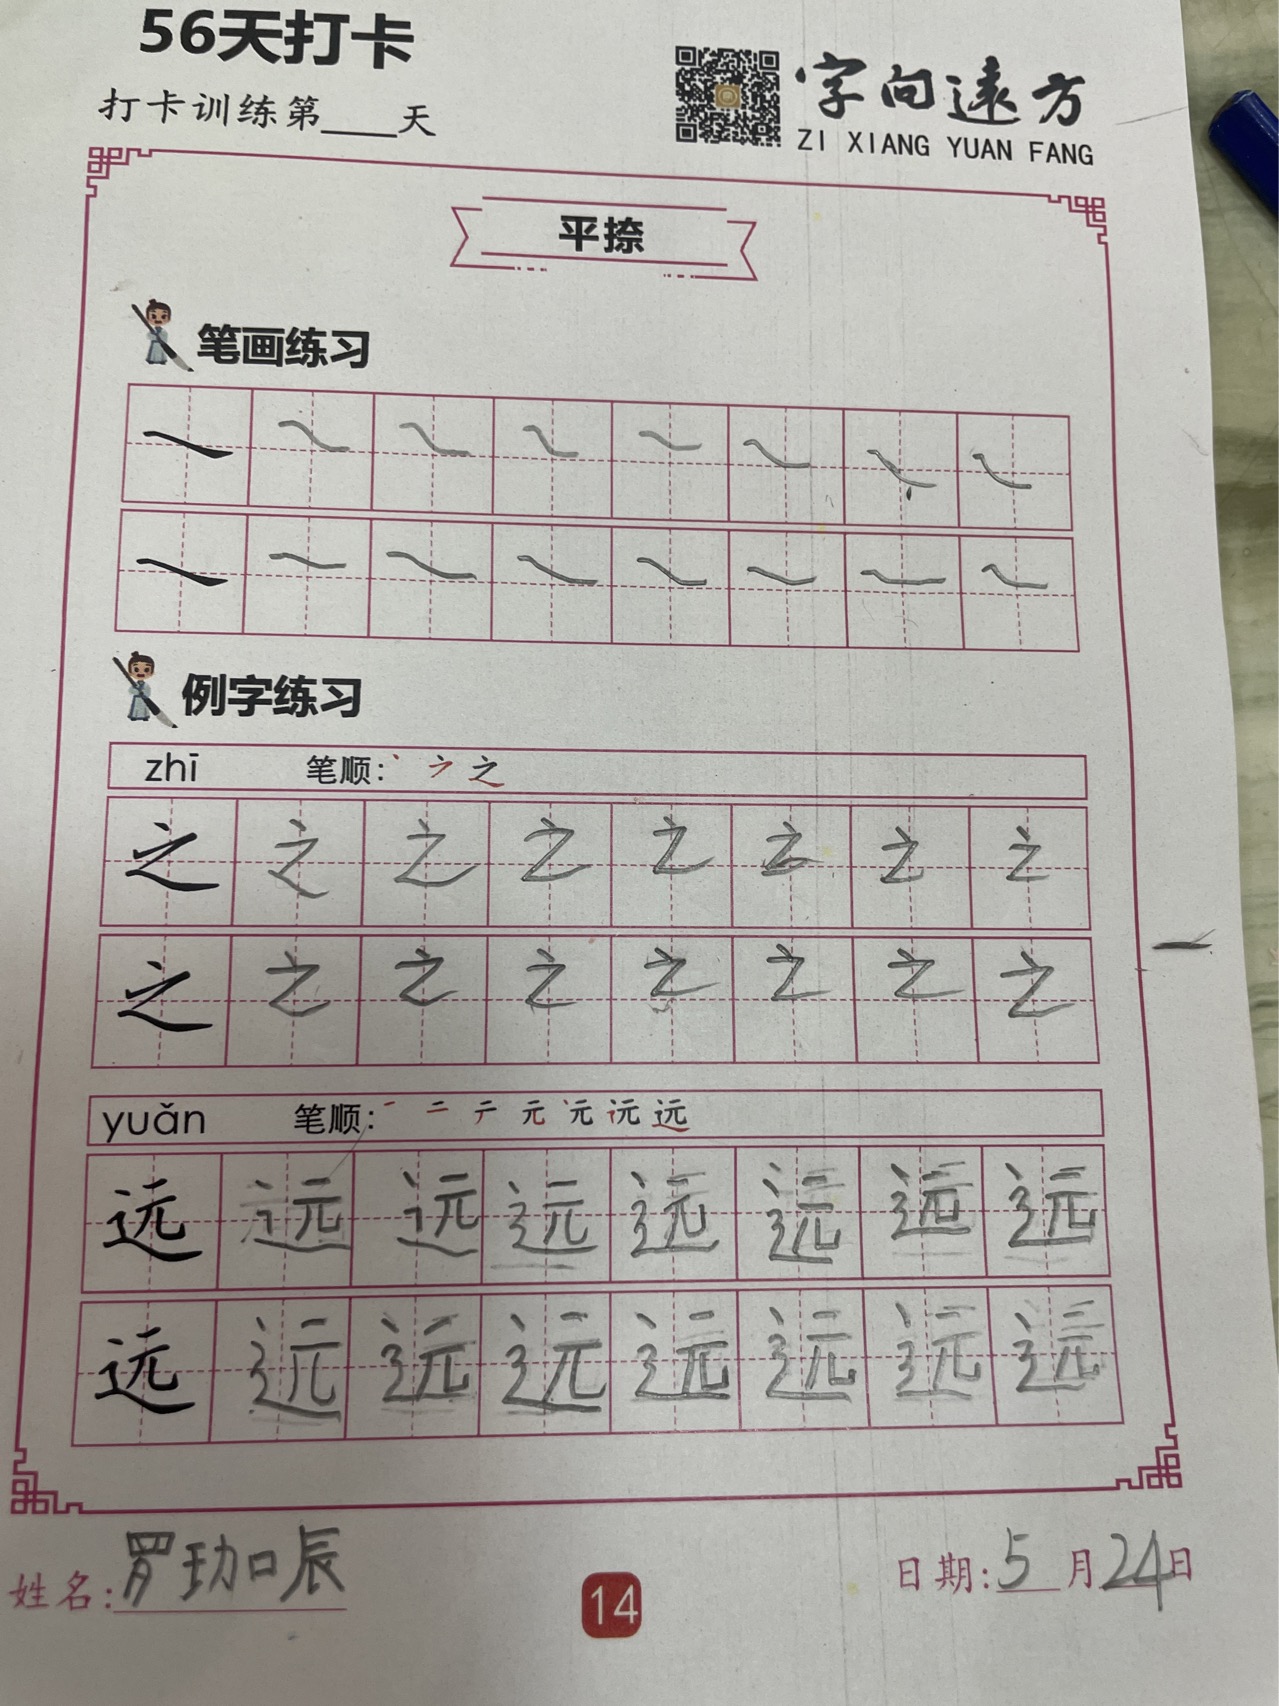 56天打卡
打卡训练第____天
字向遠方
ZI XIANG YUAN FANG
平捺
笔画练习
例字练习
zhī 笔顺:
之 之 之 之 之 之 之 之
之 之 之 之 之 之 之 之
yuǎn 笔顺:
远 远 远 远 远 远 远 远
远 远 远 远 远 远 远 远
姓名:罗珈辰
14
日期:5月24日